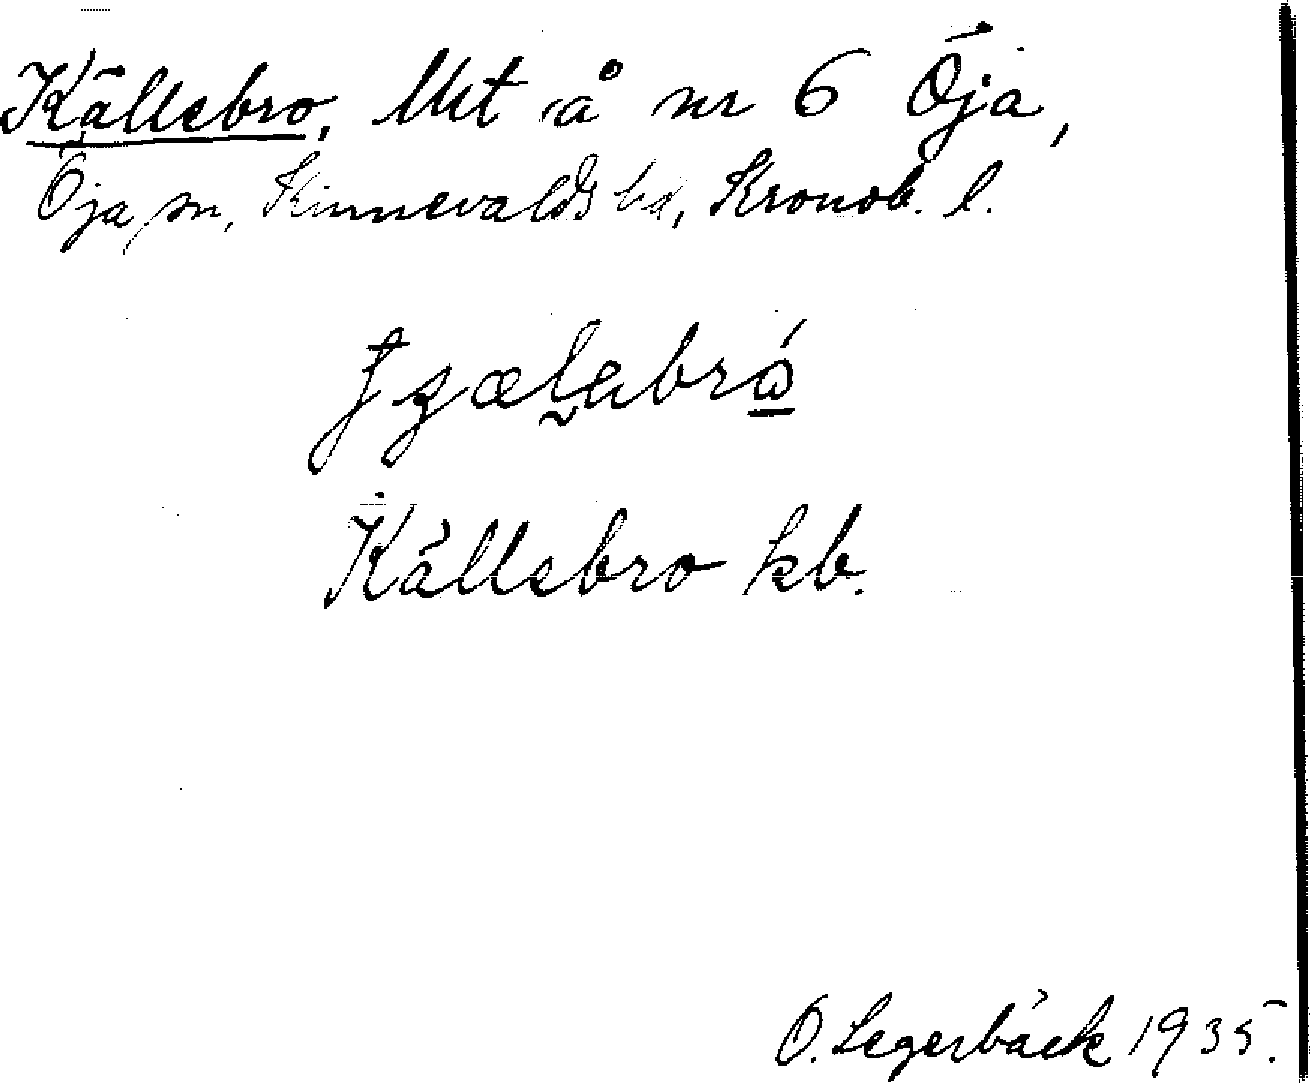 Källebro, Utst å nr 6 Öja,
Öja sn, Kinnevalds hd, Kronob. l.
Källebro kb.
O. Segerbäck 1935.